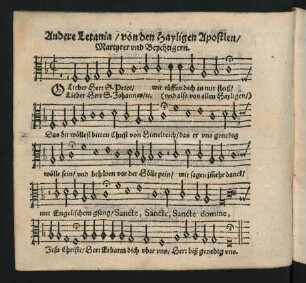 Andere Letania / von den Hayligen Apostlen /
Martyrer vnd Beychtigern.
O Lieber Herr S. Peter / wir rüffen dich an mit fleiß /
Lieber Herr S. Johannes / ꝛc. (vnd also von allen Hayligen /)
Das du wöllest bitten Christ von Himelreich / das er vns genedig
wölle sein / vnd behüten vor der Hölle pein / wir sagen jhme danck /
mit Engelischem gsang / Sancte, Sancte, Sancte domine,
Jesu Christe / Herr Erbarm dich vber vns / Herr biß genedig vns.